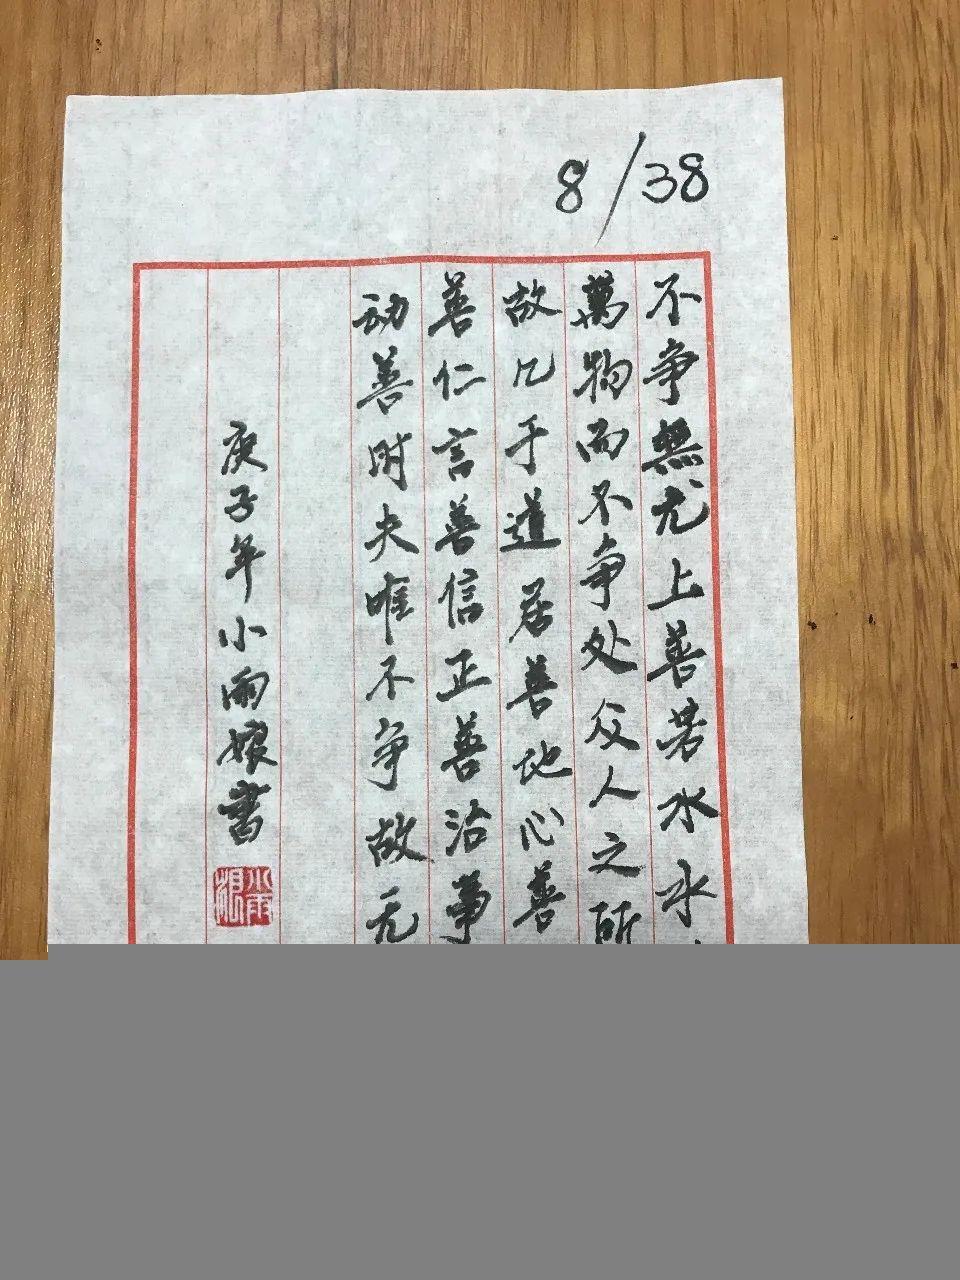 8/38
不争無尤上善若水水
萬物而不争处众人之所
故几于道居善地心善
善仁言善信正善治事
动善时夫唯不争故无
庚子年小雨娘书
小雨